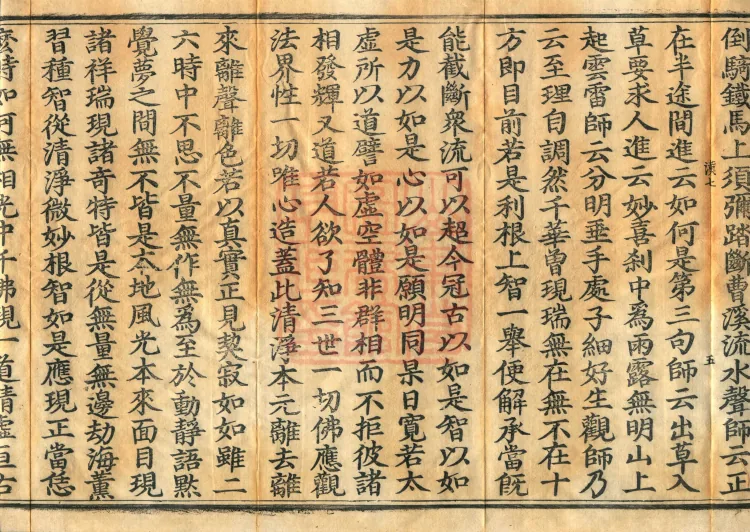 倒騎鐵馬上須彌踏斷曹溪流水聲師云正
在半途間進云如何是第三句師云出草入
草要求人進云妙喜刹中爲雨露無明山上
起雲雷師云分明垂手處子細好生觀師乃
云至理自調然千華曾現瑞無在無不在十
方即目前若是利根上智一舉便解承當旣
能截斷衆流可以超今冠古以如是智以如
是力以如是心以如是願明同杲日寬若太
虛所以道譬如虛空體非群相而不拒彼諸
相發輝又道若人欲了知三世一切佛應觀
法界性一切唯心造蓋此清淨本元離去離
來離聲離色若以真實正見契寂如如雖二
六時中不思不量無作無爲至於動靜語默
覺夢之間無不皆是本地風光本來面目現
諸祥瑞現諸奇特皆是從無量無邊劫海薰
習種智從清淨微妙根智如是應現正當恁
麼時如何無相光中千佛現一道清虛亘古
五